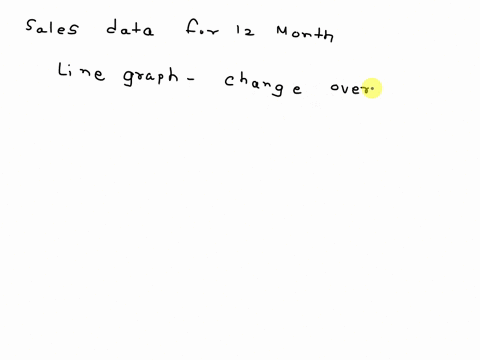 Sales data for 12 Month
Line graph - change over